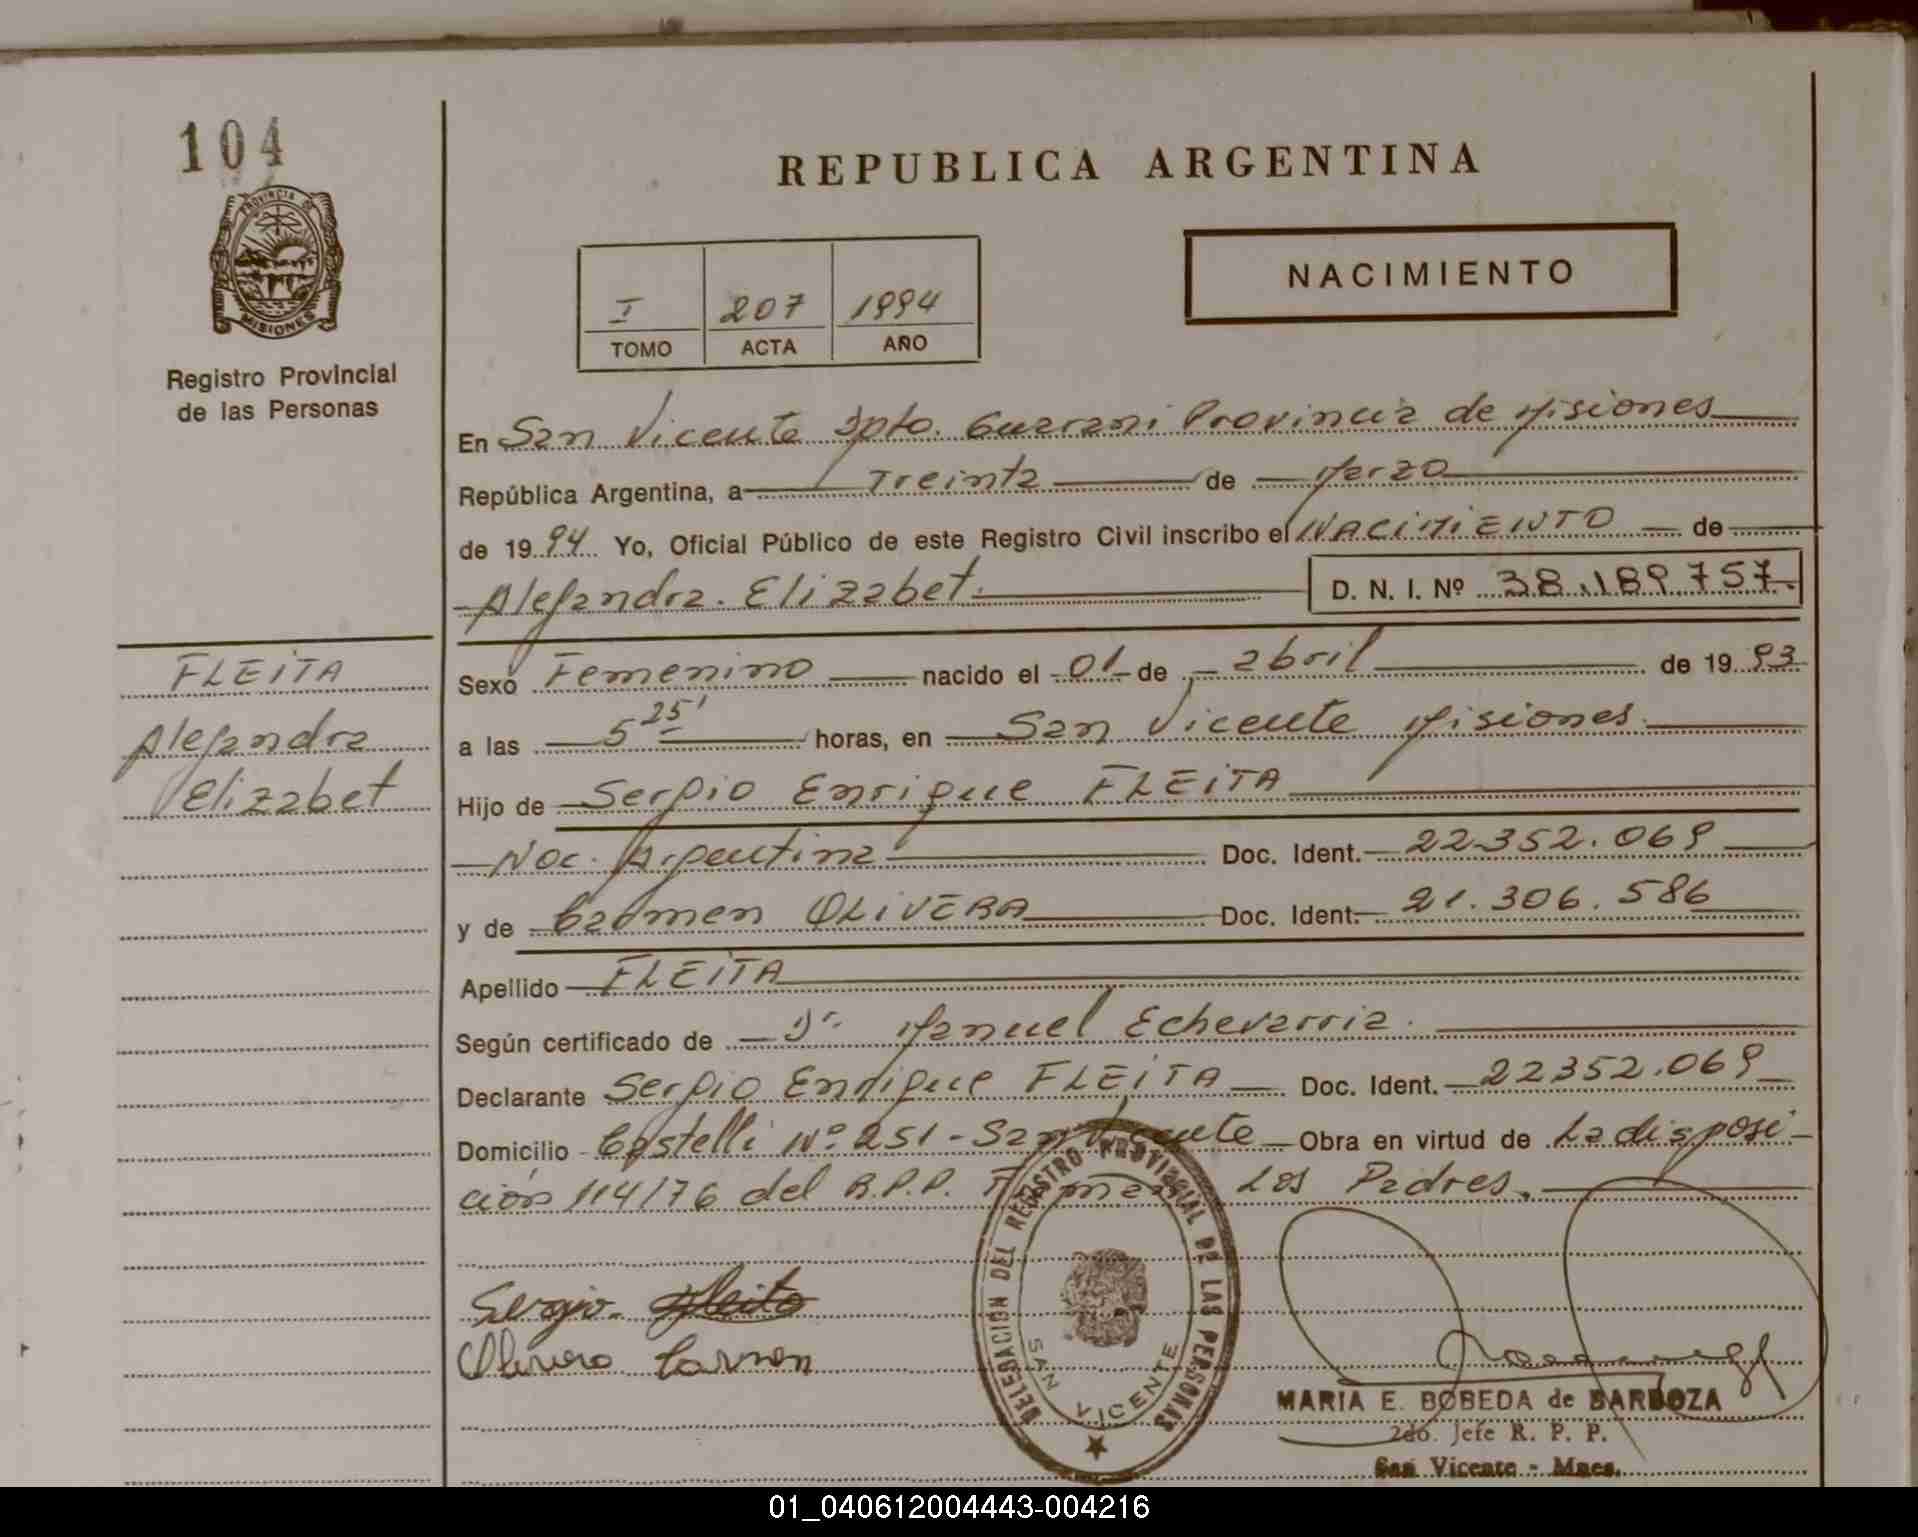 104
PROVINCIA DE
MISIONES
Registro Provincial
de las Personas
REPUBLICA ARGENTINA
I 207 1994
TOMO ACTA AÑO
NACIMIENTO
En San Vicente Dpto. Guarani Provincia de Misiones
República Argentina, a Treinta de Marzo
de 1994 Yo, Oficial Público de este Registro Civil inscribo el NACIMIENTO de
Alejandra Elizabet. D. N. I. Nº 38.189.757.
FLEITA
Alejandra
Elizabet
Sexo Femenino nacido el 01 de abril de 1993
a las 5 25' horas, en San Vicente Misiones.
Hijo de Sergio Enrique FLEITA
Nac. Argentina Doc. Ident. 22.352.069
y de Carmen OLIVERA Doc. Ident. 21.306.586
Apellido FLEITA
Según certificado de Dr. Manuel Echevarria.
Declarante Sergio Enrique FLEITA Doc. Ident. 22352.069
Domicilio Castelli Nº 251 - San Vicente Obra en virtud de La disposi-
ción 114/76 del R.P.P. Los Padres.
DELEGACIÓN DEL REGISTRO PROVINCIAL DE LAS PERSONAS
SAN VICENTE
Sergio Fleita
Olivera Carmen
MARIA E. BOBEDA de BARBOZA
2do. Jefe R. P. P.
San Vicente - Mnes.
01_040612004443-004216